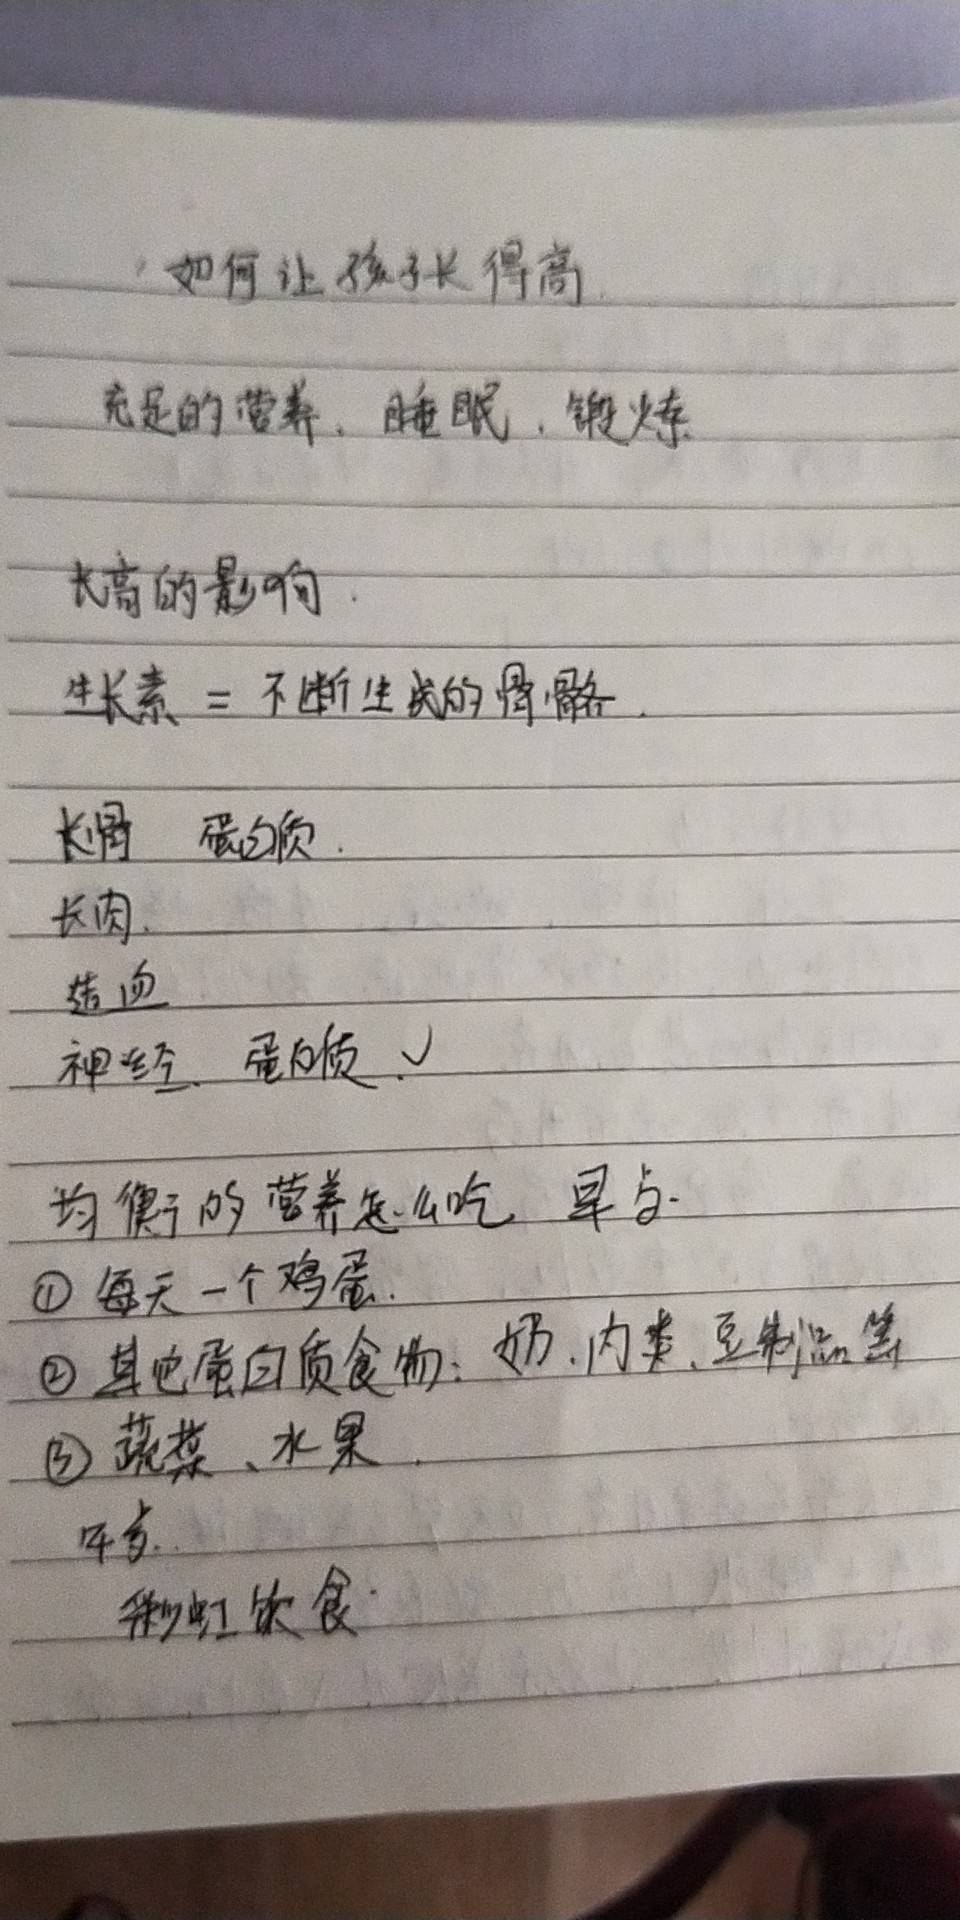 如何让孩子长得高
充足的营养、睡眠、锻炼
长高的影响.
生长素 = 不断生成的骨骼.
长骨 蛋白质.
长肉.
造血
神经. 蛋白质.√
均衡的营养怎么吃 早点.
① 每天一个鸡蛋.
② 其他蛋白质食物: 奶、肉类、豆制品等
③ 蔬菜、水果.
午点.
彩虹饮食.